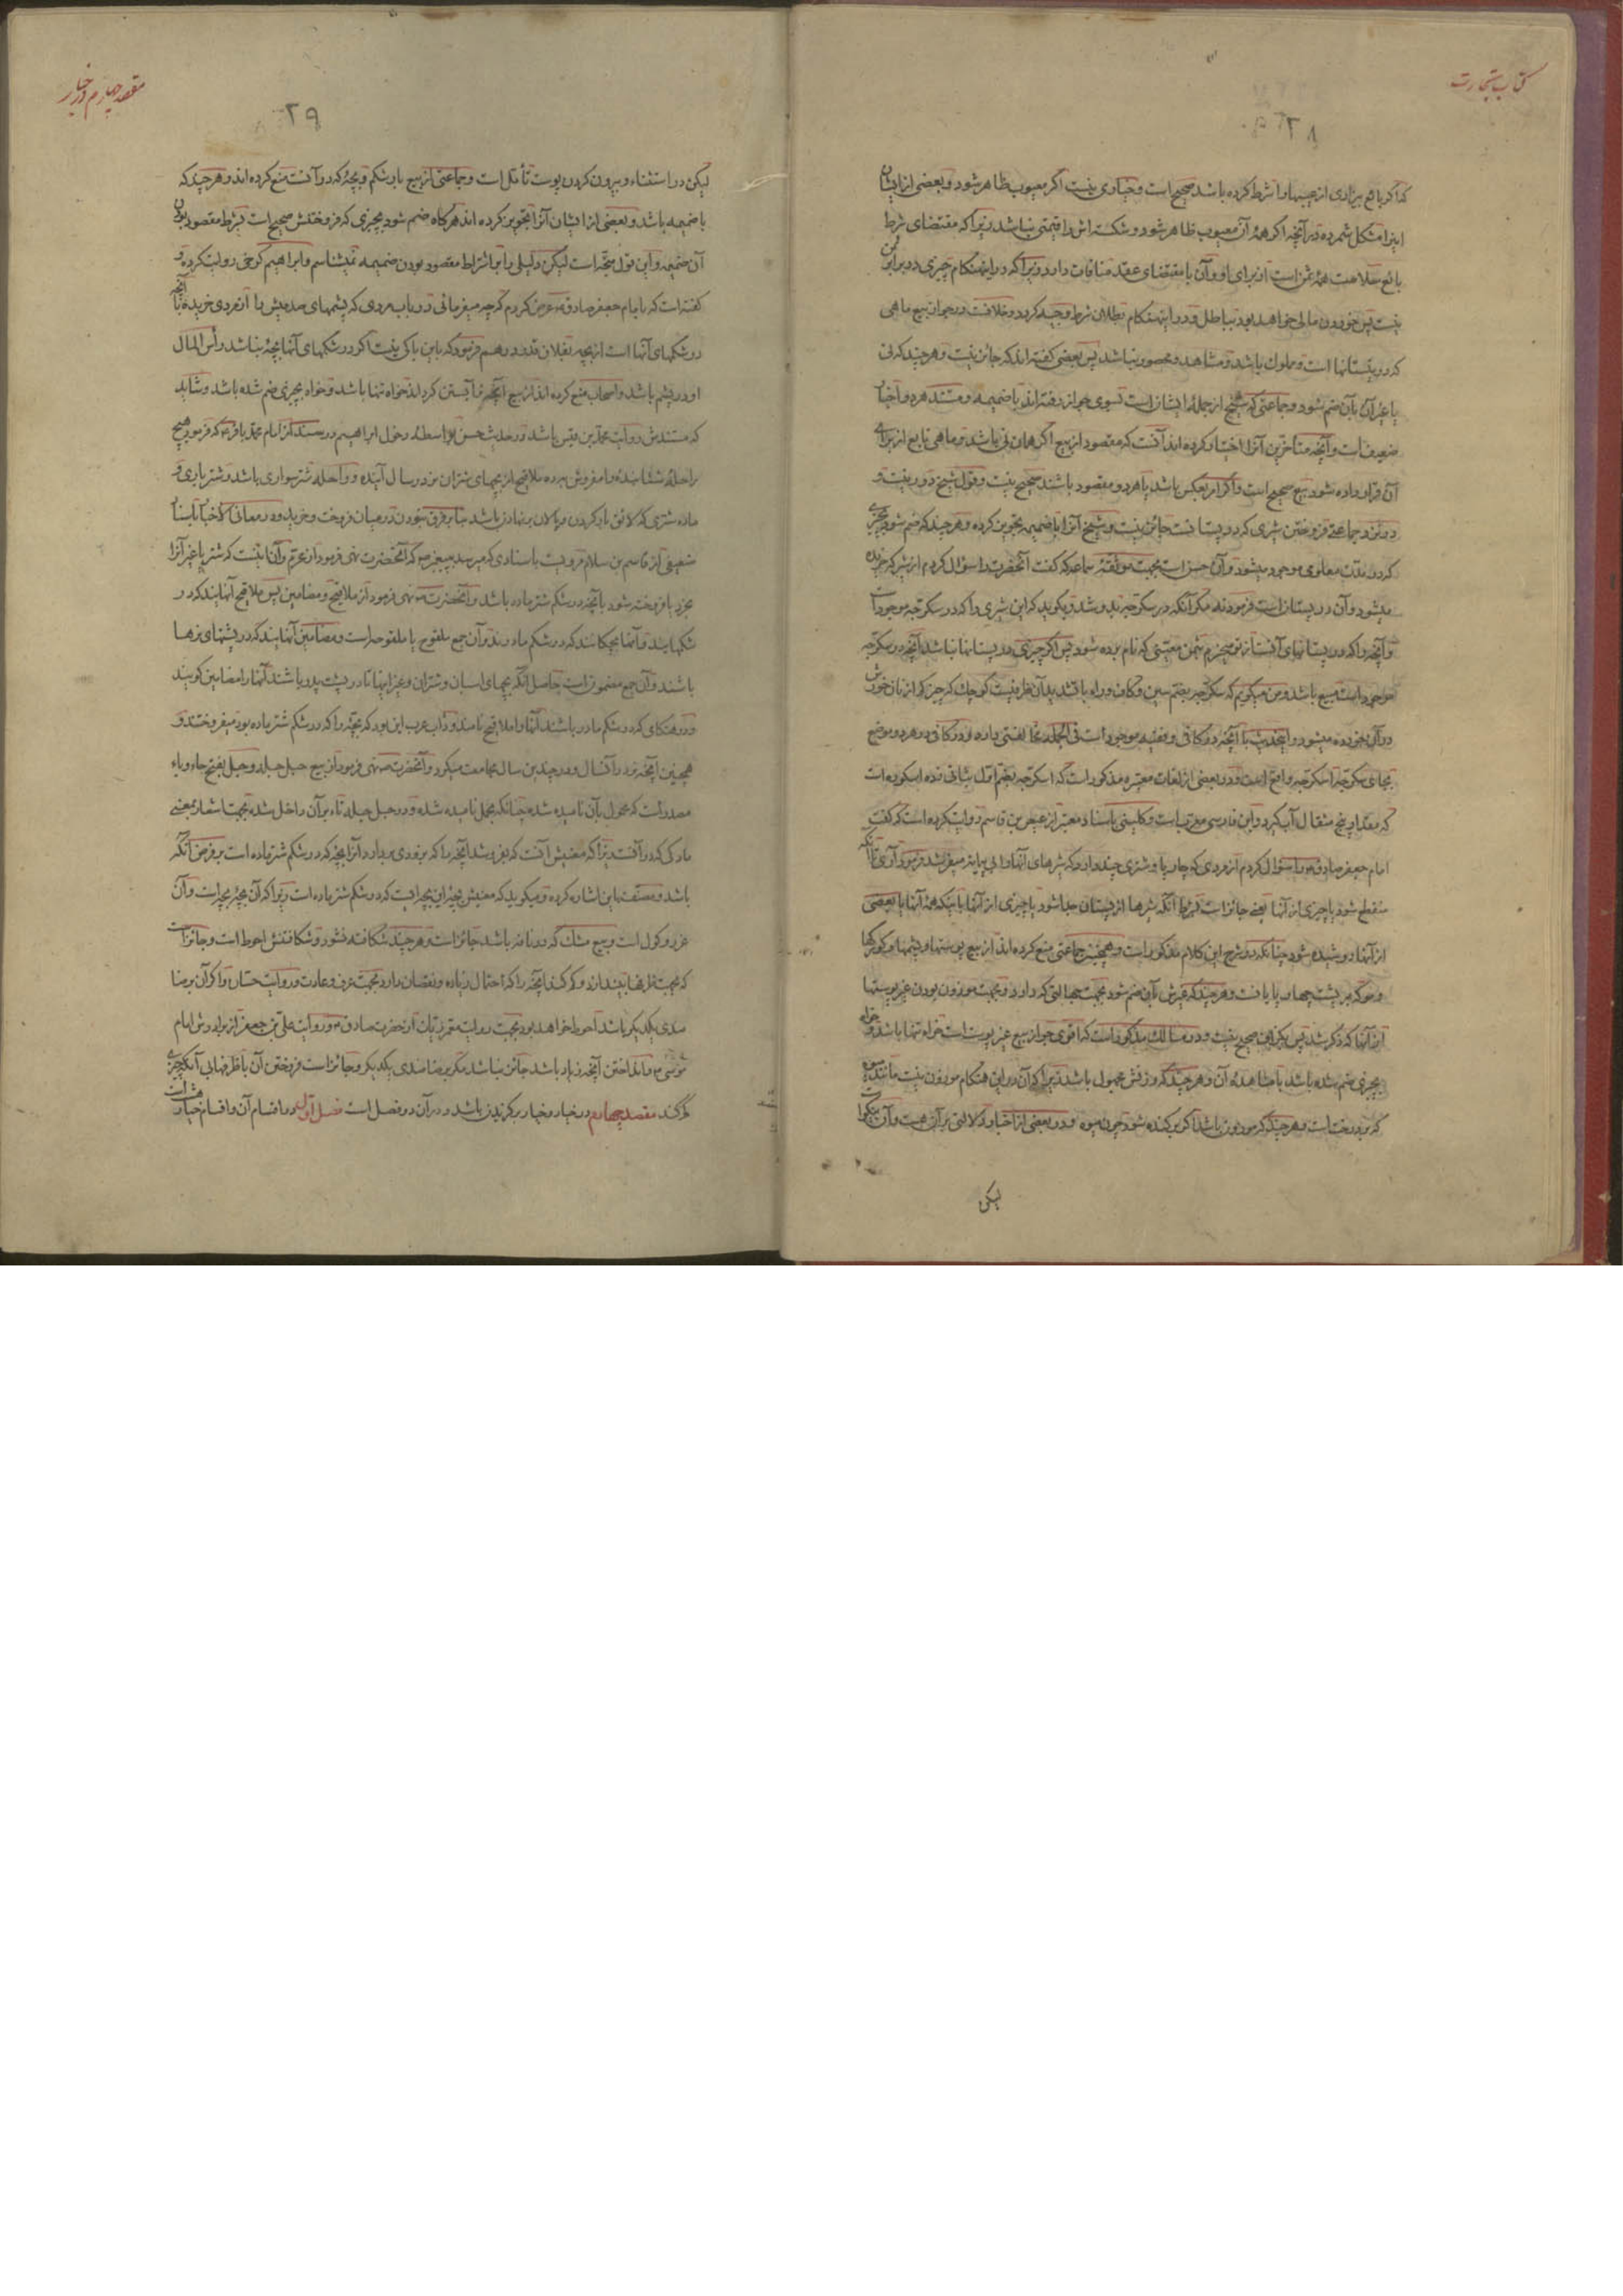 کتاب تجارت
۲۸
که اگر بایع بیزاری از عیبها را شرط کرده باشد صحیح است و خیاری نیست اگر معیوب ظاهر شود و بعضی از ایشان
اینرا مشکل شمرده در آنچه اگر همهٔ آن معیوب ظاهر شود و شکسته‌اش را قیمتی نباشد زیرا که مقتضای شرط
بایع سلامت همهٔ ثمن است از برای او و آن با مقتضای عقد منافات دارد زیرا که در اینهنگام چیزی در برابر ثمن
نیست پس خوردن مالی خواهد بود بباطل و در اینهنگام بطلان شرط وجیه گردد و خلافست در جواز بیع ماهی
که در نیستانها است و مملوک باشد و مشاهد و محصور نباشد پس بعضی گفته‌اند که جائز نیست و هر چند که نی
یا غیر آن بآن ضم شود و جماعتی که شیخ از جملهٔ ایشان است بسوی جواز رفته‌اند با ضمیمه و مستند هر دو اخبار
ضعیف است و آنچه متأخرین آنرا اختیار کرده‌اند آنست که مقصود از بیع اگر همان نی باشد و ماهی تابع از برای
آن قرار داده شود بیع صحیح است و اگر امر بعکس باشد یا هر دو مقصود باشند صحیح نیست و قول شیخ دور نیست و
نزد جماعتی فروختن شیری که در پستانست جائز نیست و شیخ آنرا با ضمیمه تجویز کرده و هر چند که ضم شود بچیزی
که در مدت معلومی موجود میشود و آن حسن است بجهت موثقهٔ سماعه که گفت آنحضرت را سؤال کردم از شیر که خریده
میشود و آن در پستان است فرمودند مگر آنکه در سکرجه بدوشد و بگوید که این شیری را که در سکرجه موجود است
و آنچه را که در پستانهای آنست از تو میخرم بثمن معینی که نام برده شود پس اگر چیزی در پستانها نباشد آنچه در سکرجه
موجود است مبیع باشد و من میگویم که سکرجه بضم سین و کاف و راء با تشدید آن ظرفیست کوچک که چیز کم از نان خورش
در آن خورده میشود و اینحدیث با آنچه در کافی و فقیه موجود است فی الجمله مخالفتی دارد و در کافی در هر دو موضع
بجای سکرجه اسکرجه واقع است و در بعضی از لغات معتبره مذکور است که اسکرجه بضم اول بشانی زده اسکوره است
که مقدار پنج مثقال آب گیرد و این فارسی معرب است و کلینی باسناد معتبر از عیص بن قاسم روایت کرده است که گفت
امام جعفر صادق ع را سؤال کردم از مردی که چارپا و شتری چند دارد که شیرهای آنها را بی پیمانه میفروشد فرمود آری تا آنکه
منقطع شود یا چیزی از آنها یعنی جائز است بشرط آنکه شیرها از پستان جدا شود یا چیزی از آنها یا بآنکه همهٔ آنها یا بعضی
از آنها دوشیده شود چنانکه در شرح این کلام مذکور است و همچنین جماعتی منع کرده‌اند از بیع پوستها و پشمها و کرکها
و مو که بر پشت چهارپایانست و هر چند که غیرش بآن ضم شود بجهت جهالتی که دارد و بجهت موزون بودن غیر پوستها
از آنها که ذکر شد پس بیکراف صحیح نیست و در مسالک مذکور است که اقوی جواز بیع غیر پوست است خواه تنها باشد و خواه
بچیزی ضم شده باشد با مشاهدهٔ آن و هر چند که وزنش مجهول باشد زیرا که آن در این هنگام موزون نیست مانند میوه
که بر درخت است و هر چند که موزون باشد اگر بر کنده شود چون میوه و در بعضی از اخبار دلالتی بر آن هست و آن نیکو است
لیکن
مقصد چهارم در خیار
۲۹
لیکن در استثناء و بیرون کردن پوست تأمل است و جماعتی از بیع بار شکم و بچهٔ که در آنست منع کرده‌اند و هر چند که
با ضمیمه باشد و بعضی از ایشان آنرا تجویز کرده‌اند هرگاه ضم شود بچیزی که فروختنش صحیح است بشرط مقصود بودن
آن ضمیمه و این قول متجه است لیکن دلیلی را بر اشتراط مقصود بودن ضمیمه نمیشناسم و ابراهیم کرخی روایت کرده و
گفته است که بامام جعفر صادق ع عرض کردم که چه میفرمائی در باب مردی که پشمهای صد میش را از مردی خریده با آنچه
در شکمهای آنها است از بچه بفلان قدر درهم فرمود که باین باکی نیست اگر در شکمهای آنها بچه نباشد رأس المال
او در پشم باشد و اصحاب منع کرده‌اند از بیع آنچه نر آبستن کرداند خواه تنها باشد و خواه بچیزی ضم شده باشد و شاید
که مستندش روایت محمد بن قیس باشد و در حدیث حسن بواسطهٔ دخول ابراهیم در سند از امام محمد باقر ع که فرمود هیچ
راحلهٔ شتابنده را مفروش بده ملاقیح از بچهای شتران نر در سال آینده و راحله شتر سواری باشد و شتر باری و
ماده شتری که لائق بار کردن و پالان بر نهادن باشد بنابر فرق نبودن در میان فروخت و خرید و در معانی الاخبار باسناد
ضعیفی از قاسم بن سلام مرویست باسنادی که میرسد بپیغمبر ص که آنحضرت نهی فرمود از عزم و آن اینست که شتر یا غیر آنرا
بخرد یا فروخته شود بآنچه در شکم شتر ماده باشد و آنحضرت ص نهی فرمود از ملاقیح و مضامین پس ملاقیح آنهایند که در
شکمهایند و آنها بچگانند که در شکم مادرند و آن جمع ملقوح یا ملقوحه است و مضامین آنهایند که در پشتهای نرها
باشند و آن جمع مضمون است حاصل آنکه بچهای اسبان و شتران و غیر اینها تا در پشت پدر باشند آنها را مضامین گویند
و در هنگامی که در شکم مادر باشند آنها را ملاقیح نامند و داب عرب این بود که بچهٔ را که در شکم شتر ماده بود میفروختند و
همچنین آنچه نر در آنسال و در چندین سال مجامعت میکرد و آنحضرت ص نهی فرمود از بیع حبل حبله و حبل بفتح حاء و باء
مصدر است که محمول بآن نامیده شده چنانکه بحمل نامیده شده و در حبل حبله تاء بر آن داخل شده بجهت اشعار بمعنی
مادگی که در آنست زیرا که معنیش آنست که بفروشد آنچه را که بزودی بر دارد آنرا بچهٔ که در شکم شتر ماده است بر فرض آنکه ماده
باشد و مصنف باین اشاره کرده و میگوید که معنیش بچهٔ این بچه ایست که در شکم شتر ماده است زیرا که آن بچهٔ بچه است و آن
غرر و گول است و بیع مشک که در نافه باشد جائز است و هر چند شکافته نشود و شکافتنش احوط است و جائز است
که بجهت ظرفها بیندازند و کم کنند آنچه را که احتمال زیاده و نقصان دارد بجهت عرف و عادت و روایت حنان و اگر آن برضا
مندی یکدیگر باشد احوط خواهد بود بجهت روایت معمر زیات از حضرت صادق ع و روایت علی بن جعفر از برادرش امام
موسی ع و انداختن آنچه زیاد باشد جائز نباشد مگر برضامندی یکدیگر و جائز است فروختن آن با ظرفها بی آنکه چیزی
کم کند مقصد چهارم در خیار و خیار برگزیدن باشد و در آن دو فصل است فصل اول در اقسام آن و اقسام خیار هشت است